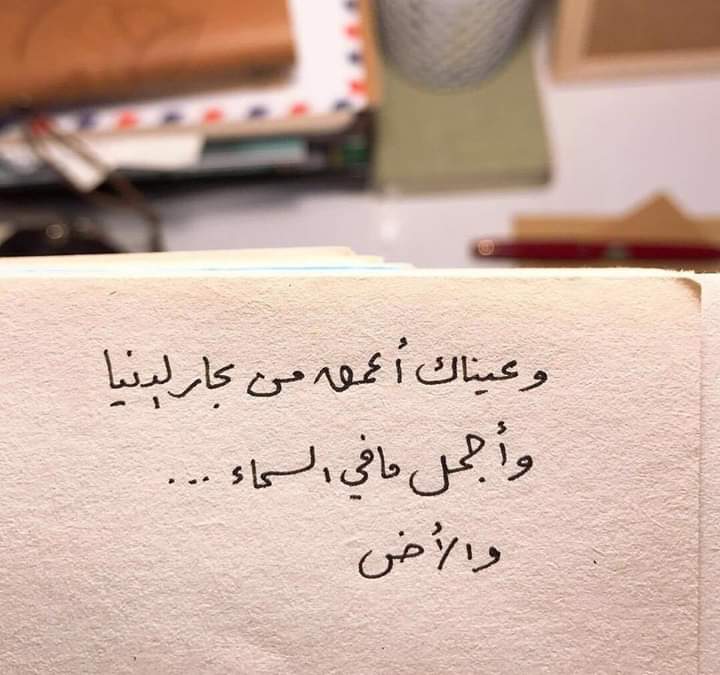 وعيناك أعمق من بحار الدنيا
وأجمل مافي السماء ...
والأرض